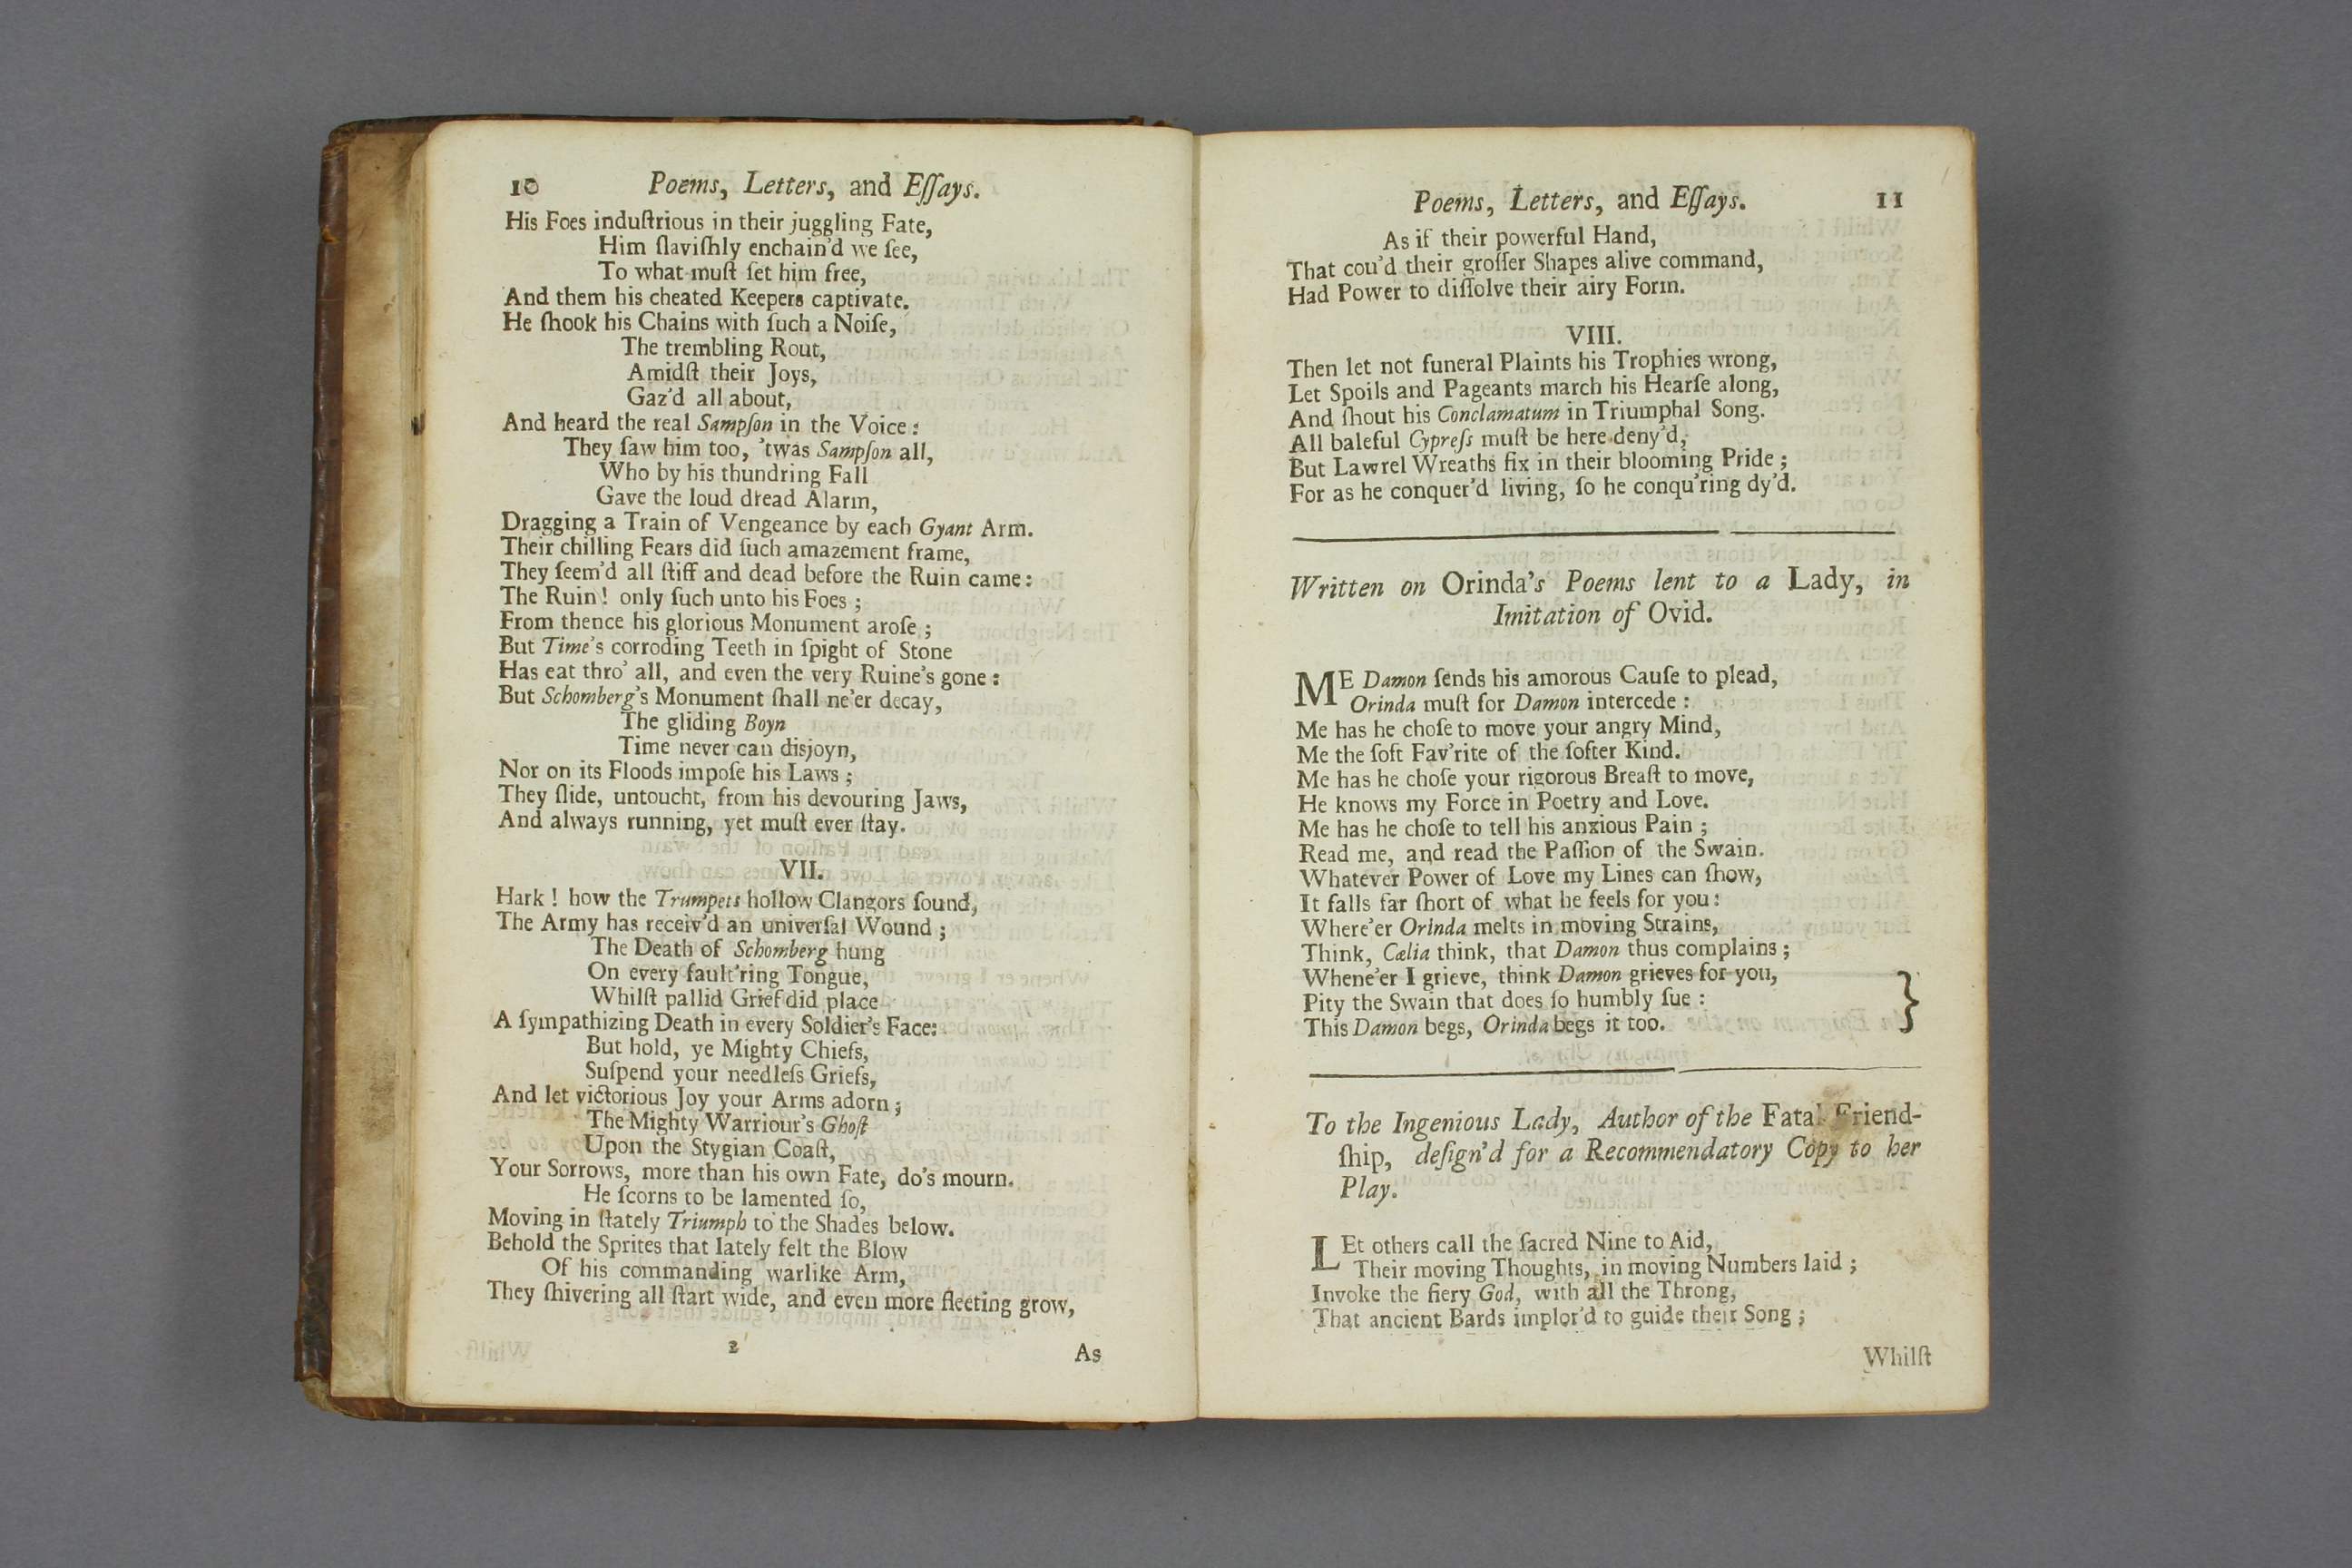 10 Poems, Letters, and Eſſays.
His Foes induſtrious in their juggling Fate,
Him ſlaviſhly enchain'd we ſee,
To what muſt ſet him free,
And them his cheated Keepers captivate.
He ſhook his Chains with ſuch a Noiſe,
The trembling Rout,
Amidſt their Joys,
Gaz'd all about,
And heard the real Sampſon in the Voice:
They ſaw him too, 'twas Sampſon all,
Who by his thundring Fall
Gave the loud dread Alarm,
Dragging a Train of Vengeance by each Gyant Arm.
Their chilling Fears did ſuch amazement frame,
They ſeem'd all ſtiff and dead before the Ruin came:
The Ruin! only ſuch unto his Foes;
From thence his glorious Monument aroſe;
But Time's corroding Teeth in ſpight of Stone
Has eat thro' all, and even the very Ruine's gone:
But Schomberg's Monument ſhall ne'er decay,
The gliding Boyn
Time never can disjoyn,
Nor on its Floods impoſe his Laws;
They ſlide, untoucht, from his devouring Jaws,
And always running, yet muſt ever ſtay.
VII.
Hark! how the Trumpets hollow Clangors ſound,
The Army has receiv'd an univerſal Wound;
The Death of Schomberg hung
On every fault'ring Tongue,
Whilſt pallid Grief did place
A ſympathizing Death in every Soldier's Face:
But hold, ye Mighty Chiefs,
Suſpend your needleſs Griefs,
And let victorious Joy your Arms adorn;
The Mighty Warriour's Ghoſt
Upon the Stygian Coaſt,
Your Sorrows, more than his own Fate, do's mourn.
He ſcorns to be lamented ſo,
Moving in ſtately Triumph to the Shades below.
Behold the Sprites that lately felt the Blow
Of his commanding warlike Arm,
They ſhivering all ſtart wide, and even more fleeting grow,
2 As
Poems, Letters, and Eſſays. 11
As if their powerful Hand,
That cou'd their groſſer Shapes alive command,
Had Power to diſſolve their airy Form.
VIII.
Then let not funeral Plaints his Trophies wrong,
Let Spoils and Pageants march his Hearſe along,
And ſhout his Conclamatum in Triumphal Song.
All baleful Cypreſs muſt be here deny'd,
But Lawrel Wreaths fix in their blooming Pride;
For as he conquer'd living, ſo he conqu'ring dy'd.
Written on Orinda's Poems lent to a Lady, in
Imitation of Ovid.
ME Damon ſends his amorous Cauſe to plead,
Orinda muſt for Damon intercede:
Me has he choſe to move your angry Mind,
Me the ſoft Fav'rite of the ſofter Kind.
Me has he choſe your rigorous Breaſt to move,
He knows my Force in Poetry and Love.
Me has he choſe to tell his anxious Pain;
Read me, and read the Paſſion of the Swain.
Whatever Power of Love my Lines can ſhow,
It falls far ſhort of what he feels for you:
Where'er Orinda melts in moving Strains,
Think, Cælia think, that Damon thus complains;
Whene'er I grieve, think Damon grieves for you,
Pity the Swain that does ſo humbly ſue:
This Damon begs, Orinda begs it too.
To the Ingenious Lady, Author of the Fatal Friend-
ſhip, deſign'd for a Recommendatory Copy to her
Play.
LEt others call the ſacred Nine to Aid,
Their moving Thoughts, in moving Numbers laid;
Invoke the fiery God, with all the Throng,
That ancient Bards implor'd to guide their Song;
Whilſt